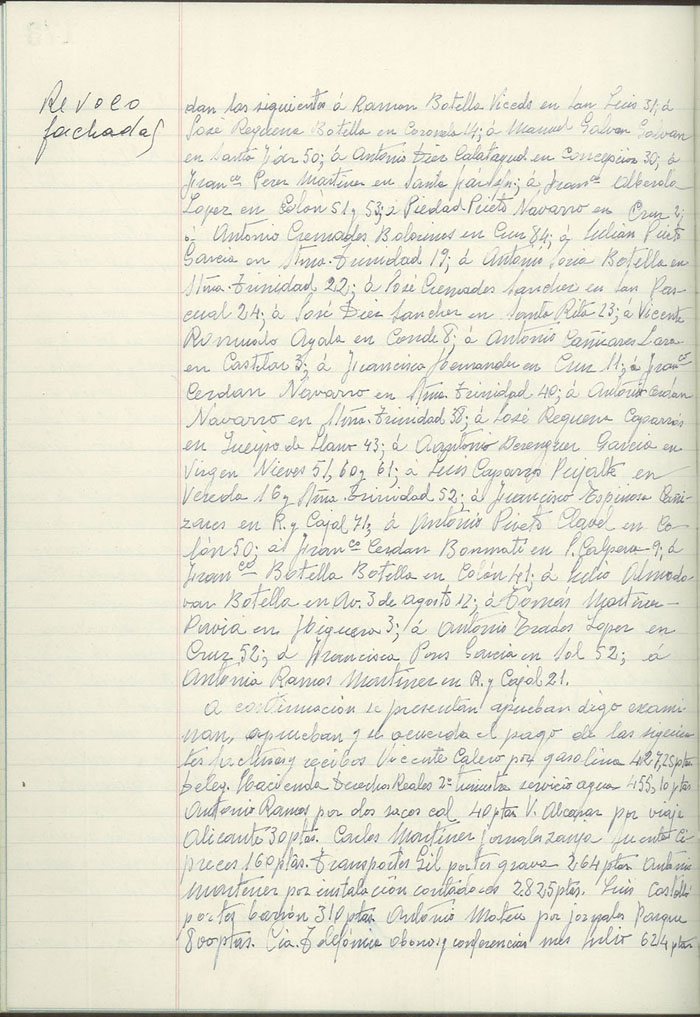 Revoco
fachadas
dan las siguientes á Ramon Botella Viceds en San Luis 31; á
José Requena Botella en Coronda 4; á Manuel Galvan Galvan
en Santa 50; á Antonio Diez Calatayud en Concepcion 30; á
Franco Perez Martinez en Santa; á Franco Alberola
Lopez en Colón 51 y 53; á Piedad Prieto Navarro en Cruz 2;
á Antonio Cremades en Cruz 84; á Julian Prieto
Garcia en Stma. Trinidad 19; á Antonio Soria Botella en
Stma. Trinidad 22; á José Cremades Sanchez en San Pas-
cual 24; á José Diez Sanchez en Santa Rita 23; á Vicente
Romualo Ayala en Conde 8; á Antonio Cañizares Lara
en Castelar 3; á Francisca Hernandez en Cruz 11; á Franco
Cerdan Navarro en Stma. Trinidad 40; á Antonio Cerdan
Navarro en Stma. Trinidad 38; á José Requena Caparrós
en Queipo de Llano 43; á Antonio Berenguer Garcia en
Virgen Nieves 51, 60 y 61; á Luis Caparros Pujalte en
Vereda 16 y Stma. Trinidad 52; á Francisco Espinosa Cañi-
zares en R. y Cajal 71; á Antonio Prieto Clavel en Co-
lón 50; á Franco Cerdan Bonmati en P. Calpena 9; á
Franco Botella Botella en Colón 41; á Julio Almodo-
var Botella en Av. 3 de agosto 12; á Tomás Martinez
Pavia en Higuera 3; á Antonio Prados Lopez en
Cruz 52; á Francisca Pons Garcia en Sol 52; á
Antonia Ramos Martinez en R. y Cajal 21.
A continuación se presentan aprueban digo exami-
nan, aprueban y se acuerda el pago de las siguien-
tes facturas y recibos Vicente Calero por gasolina 427,25 ptas
Deleg. Hacienda Derechos Reales 2º trimestre servicio agua 455,10 ptas
Antonio Ramos por dos sacos cal 40 ptas V. Alcazar por viaje
Alicante 30 ptas. Carlos Martinez jornales zanja fuente Ci-
preces 160 ptas. Transportes Gil portes grava 264 ptas Antonio
Martinez por instalación contadores 2825 ptas. Luis Castelló
portes carbón 310 ptas Antonio Mateu por jornales Parque
800 ptas. Cia. Telefónica abonos y conferencias mes Julio 624 ptas